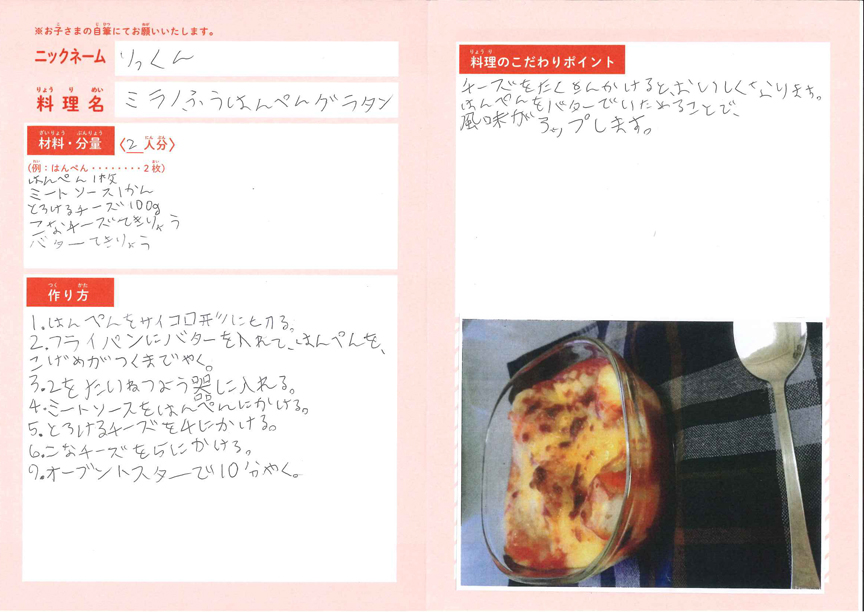 ※お子さまの自筆にてお願いいたします。
ニックネーム りっくん
料理名 ミラノふうはんぺんグラタン
材料・分量 〈2人分〉
(例:はんぺん・・・・・・・・2枚)
はんぺん1枚
ミートソース1かん
とろけるチーズ100g
こなチーズてきりょう
バターてきりょう
作り方
1.はんぺんをサイコロ形に切る。
2.フライパンにバターを入れて、はんぺんを、
こげめがつくまでやく。
3.2をたいねつよう器に入れる。
4.ミートソースをはんぺんにかける。
5.とろけるチーズを4にかける。
6.こなチーズをらにかける。
7.オーブントスターで10分やく。
料理のこだわりポイント
チーズをたくさんかけると、おいしくなります。
はんぺんをバターでいためることで、
風味がアップします。